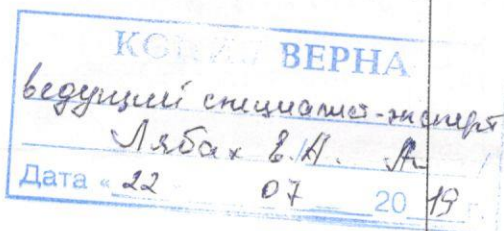 КОПИЯ ВЕРНА
ведущий специалист-эксперт
Лябах Е.А.
Дата « 22 07 20 19 г.